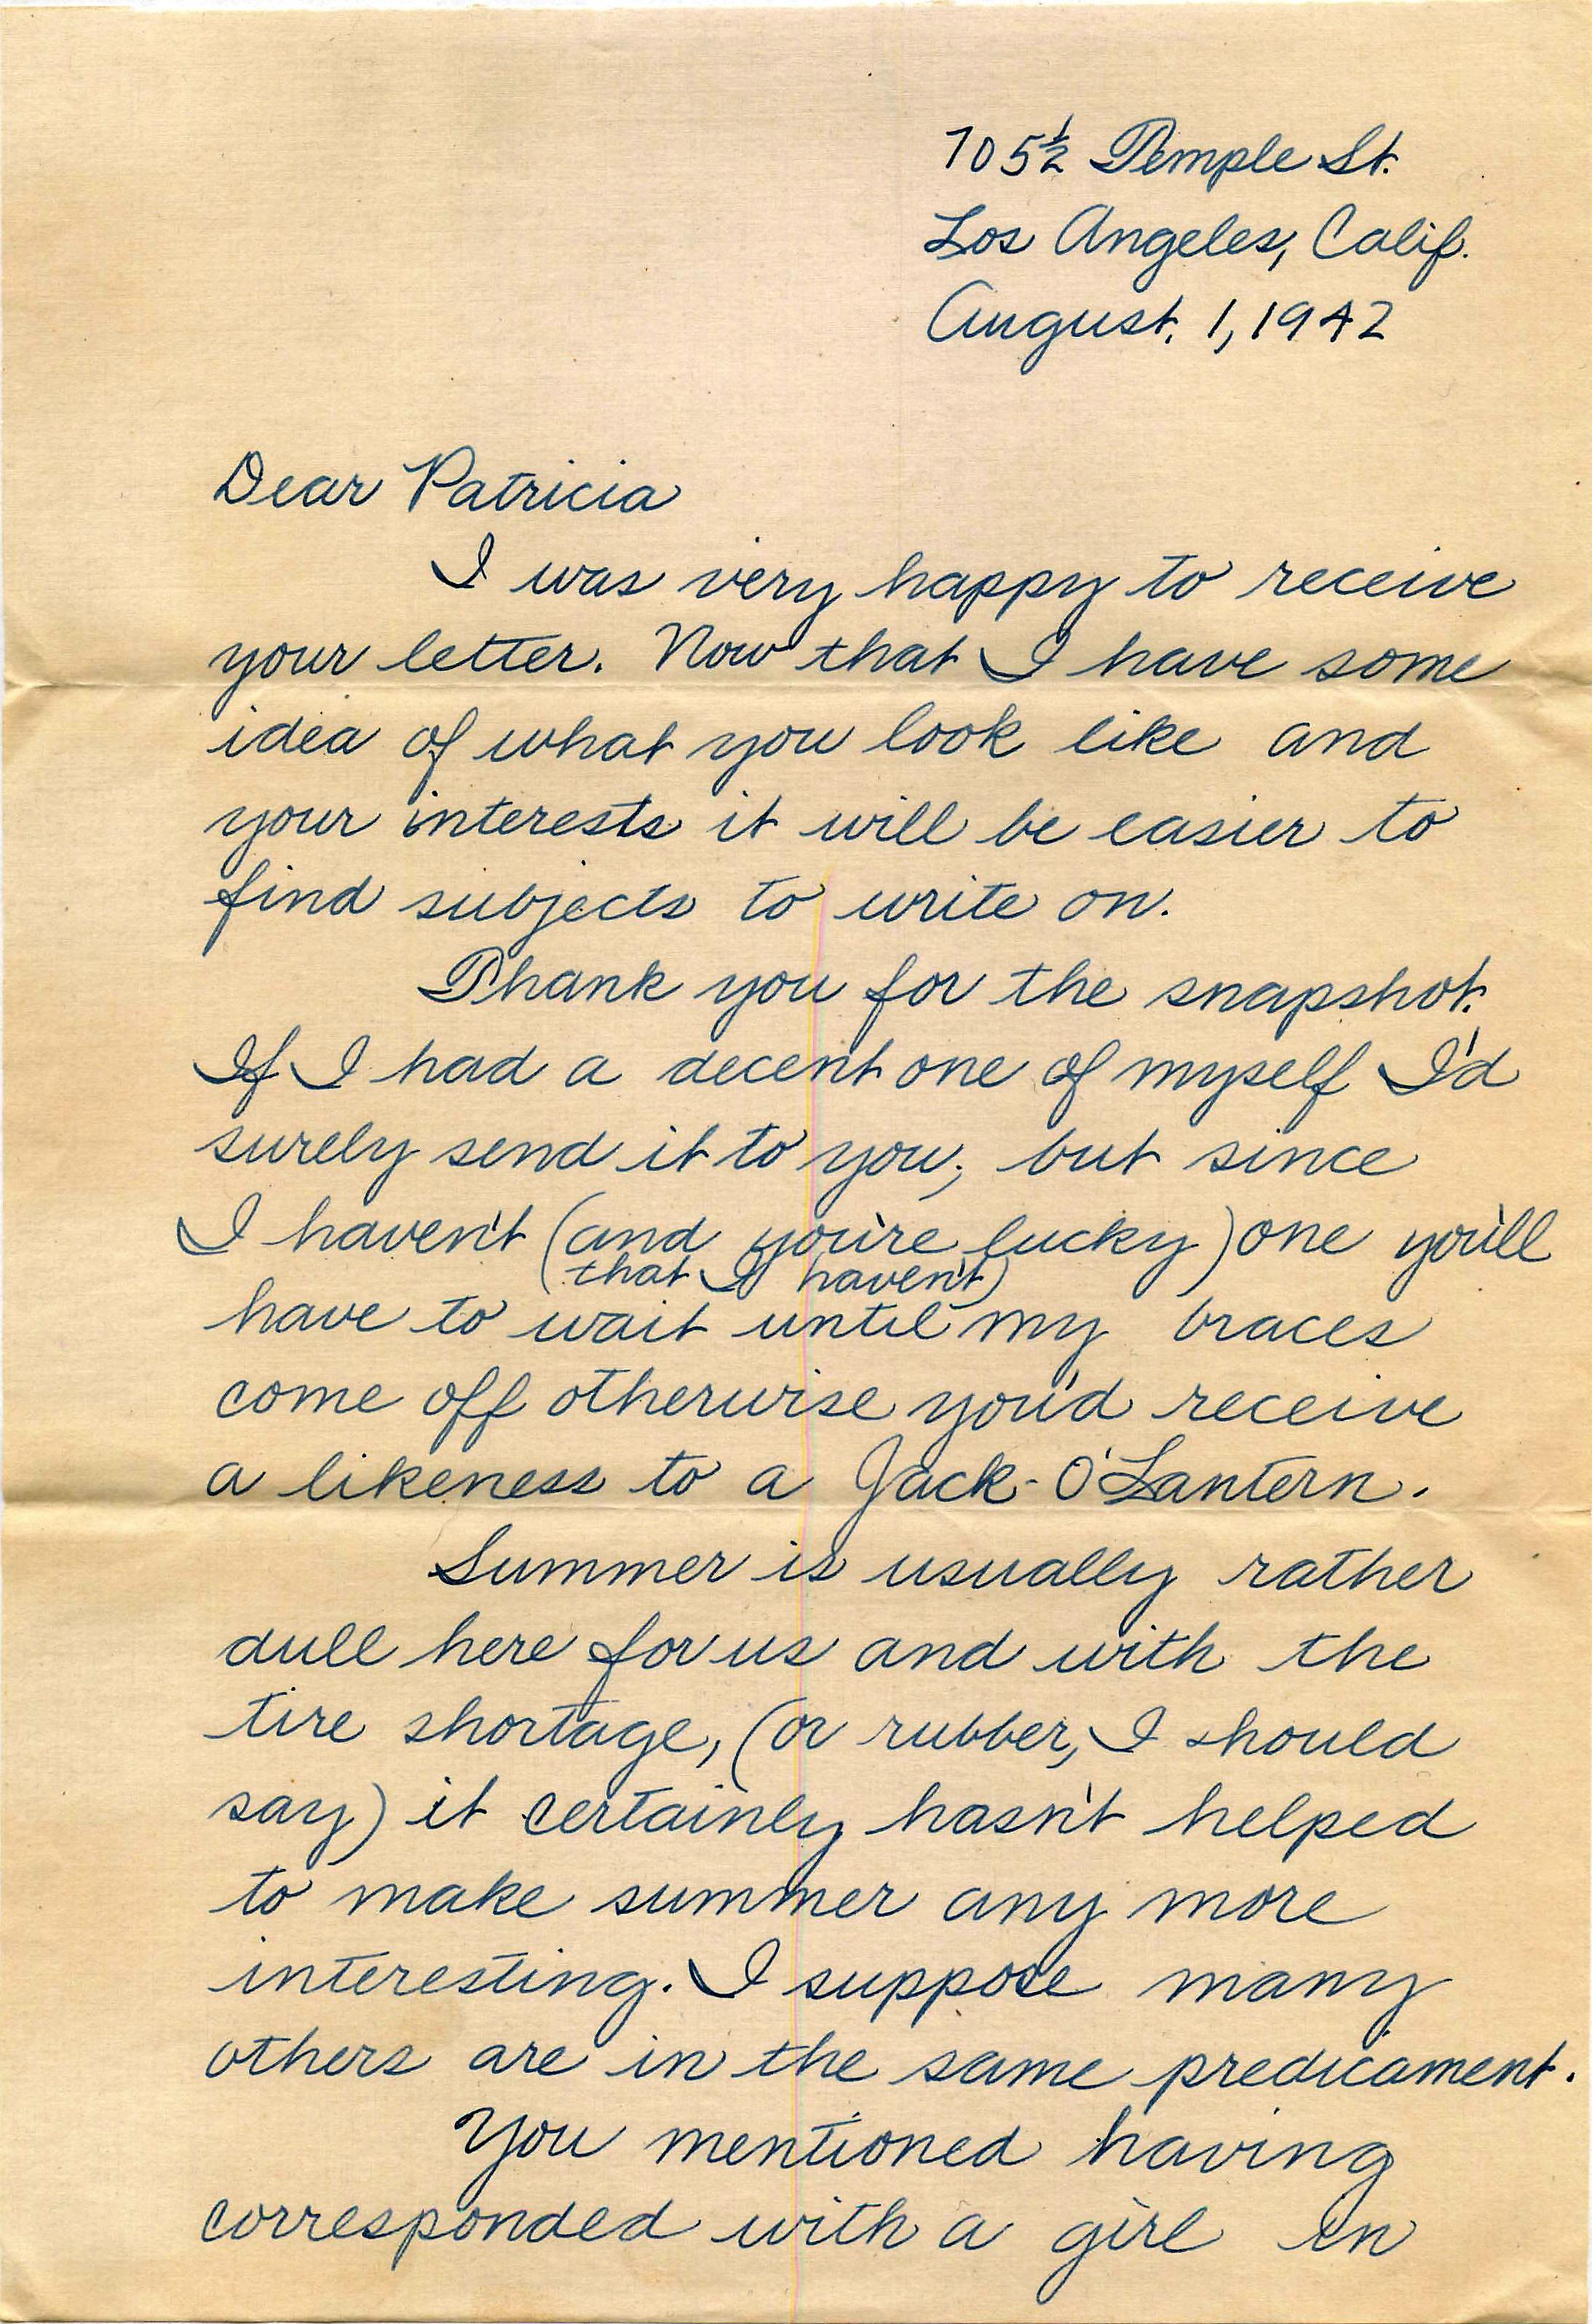 705½ Temple St.
Los Angeles, Calif.
August. 1, 1942
Dear Patricia
I was very happy to receive
your letter. Now that I have some
idea of what you look like and
your interests it will be easier to
find subjects to write on.
Thank you for the snapshot.
If I had a decent one of myself I'd
surely send it to you; but since
I haven't (and you're lucky) one you'll
(that I haven't)
have to wait until my braces
come off otherwise you'd receive
a likeness to a Jack-O'Lantern.
Summer is usually rather
dull here for us and with the
tire shortage, (or rubber, I should
say) it certainly hasn't helped
to make summer any more
interesting. I suppose many
others are in the same predicament.
You mentioned having
corresponded with a girl in